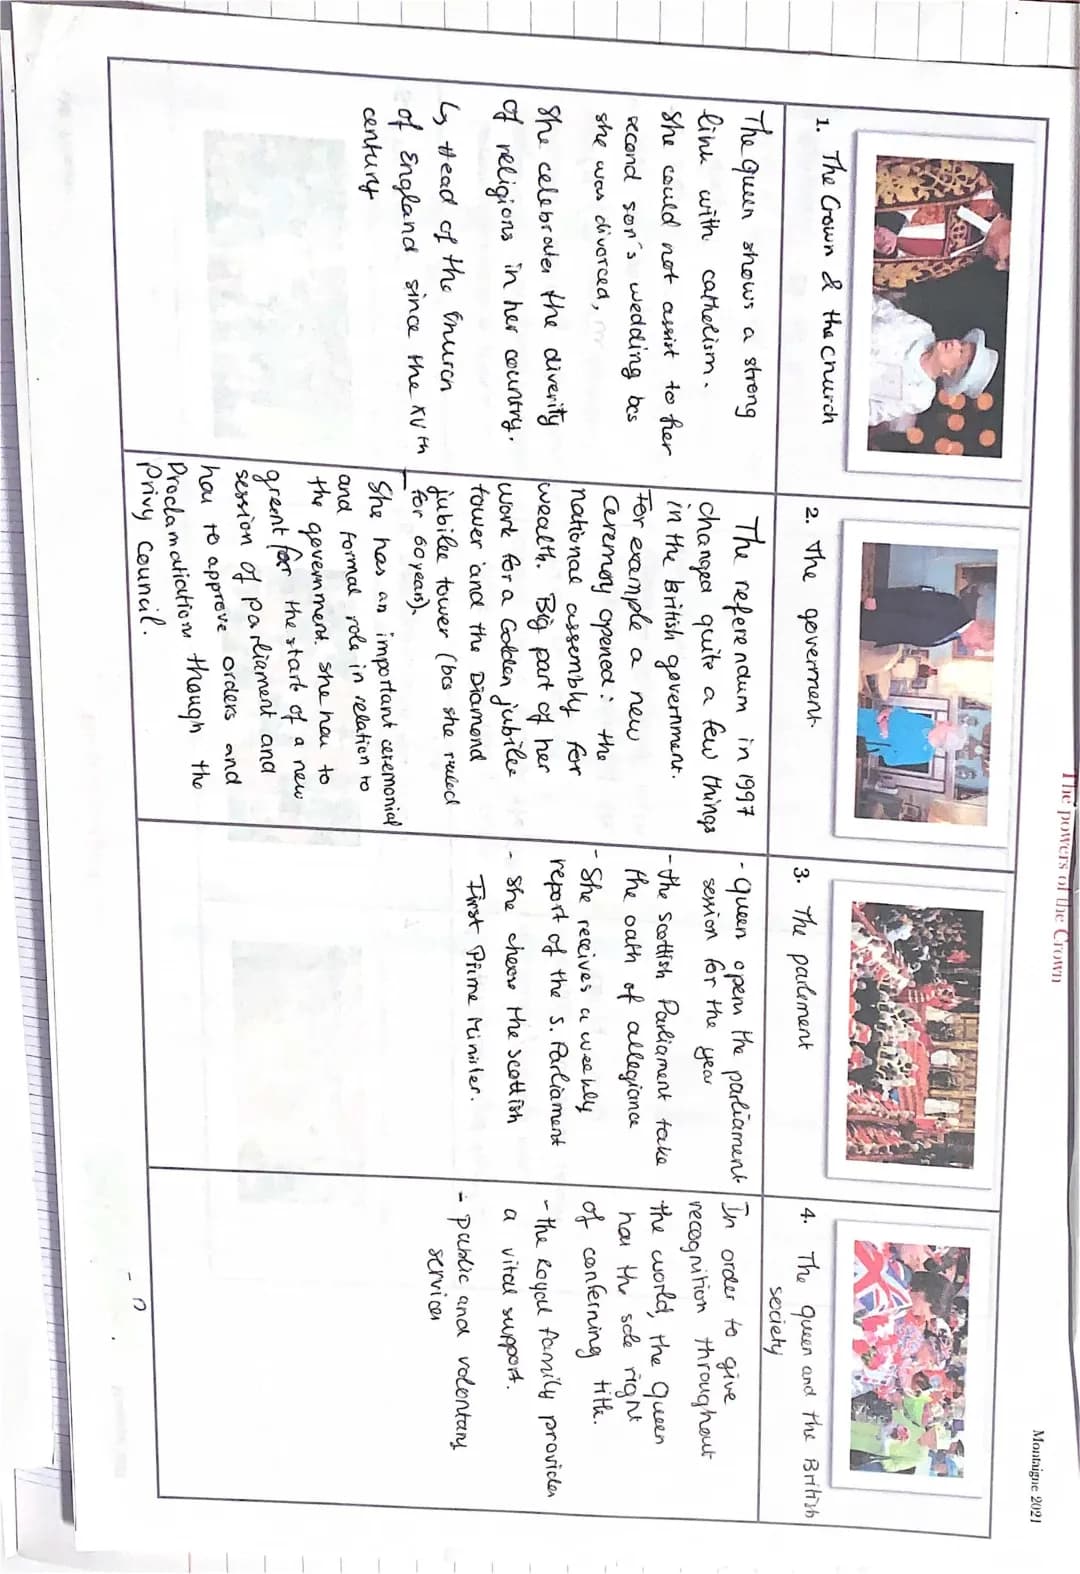 The powers of the Crown
Montaigne 2021
1. The Crown & the church
The Queen shows a strong
link with catholism.
She could not assist to her
second son's wedding bcs
she was divorced,
She celebrates the diversity
of religions in her country.
↳ Head of the Church
of England since the XVth
century
2. The government.
The referendum in 1997
changed quite a few things
in the British government.
For example a new
ceremony opened: the
national assembly for
wealth. Big part of her
work for a Golden jubilee
tower and the Diamond
jubilee tower (bcs she ruled
for 60 years).
She has an important ceremonial
and formal role in relation to
the government. she has to
greent for the start of a new
session of parliament and
has to approve orders and
Proclamations though the
Privy Council.
3. The parlement
- Queen opens the parliament
session for the year
- the Scottish Parliament take
the oath of allegiance
- She receives a weekly
report of the S. Parliament
- She choose the Scottish
First Prime Minister.
4. The queen and the British
society
In order to give
recognition throughout
the world, the Queen
has the sole right
of conferning title.
- the Royal family provides
a vital support.
- public and volontary
services